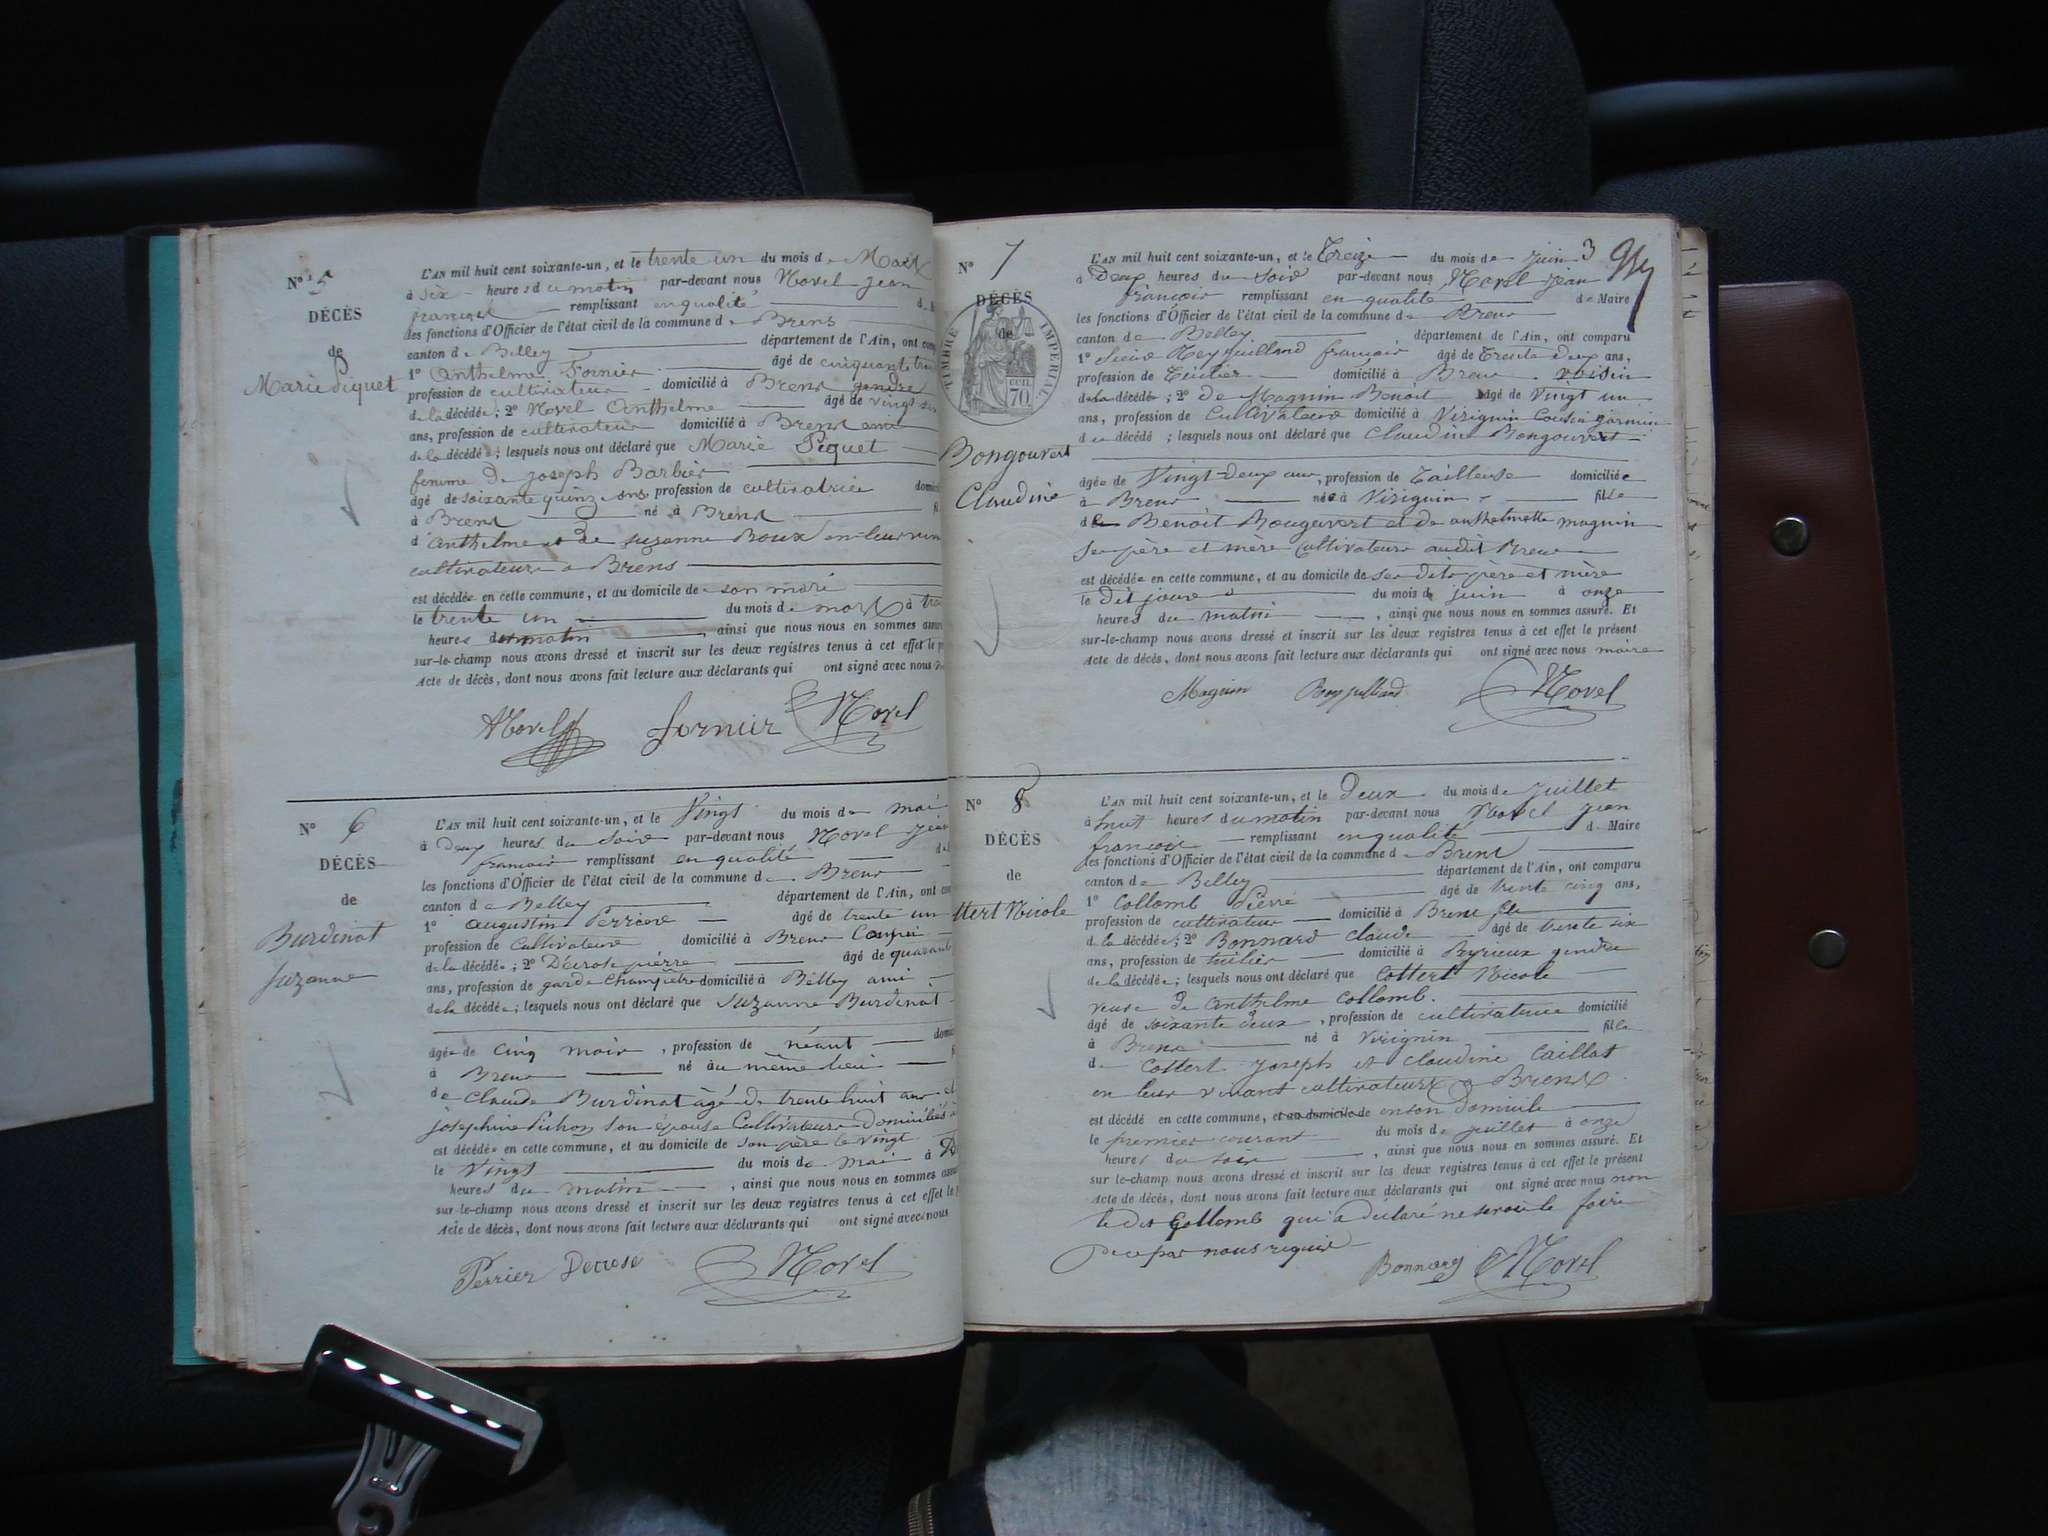 N° 5
DÉCÈS
de
Marie Piquet
L'AN mil huit cent soixante-un, et le trente un du mois de Mars
à six heures du matin par-devant nous Morel jean
françois remplissant en qualité
les fonctions d'Officier de l'état civil de la commune de Brens
canton de Belley département de l'Ain, ont
1° Anthelme Fornier âgé de cinquante
profession de cultivateur domicilié à Brens gendre
de la décédée; 2° Morel Anthelme âgé de vingt
ans, profession de cultivateur domicilié à Brens ami
de la décédée; lesquels nous ont déclaré que Marie Piquet
femme de joseph Barbier
âgé de soixante quinze ans profession de cultivatrice
à Brens né à Brens
d'anthelme et de suzanne Roux en leur
cultivateurs a Brens
est décédée en cette commune, et au domicile de son mari
le trente un du mois de mars à
heures du matin, ainsi que nous nous en sommes
sur-le-champ nous avons dressé et inscrit sur les deux registres tenus à cet effet le
Acte de décès, dont nous avons fait lecture aux déclarants qui ont signé avec nous
AMorel fornier Morel
N° 6
DÉCÈS
de
Burdinat
suzanne
L'AN mil huit cent soixante-un, et le Vingt du mois de mai
à Deux heures du soir par-devant nous Morel jean
françois remplissant en qualité
les fonctions d'Officier de l'état civil de la commune de Brens
canton de Belley département de l'Ain, ont
1° augustin Perrier âgé de trente un
profession de Cultivateur domicilié à Brens
de la décédée; 2° Décrose pierre âgé de quarante
ans, profession de garde champêtre domicilié à Belley ami
de la décédée; lesquels nous ont déclaré que suzanne Burdinat
âgée de cinq mois, profession de néant
à Brens né au même lieu
de Claude Burdinat âgé de trente huit ans
joséphine Pichon son épouse Cultivateurs domiciliés
est décédée en cette commune, et au domicile de son père le vingt
le Vingt du mois de mai à
heures du matin, ainsi que nous nous en sommes
sur-le-champ nous avons dressé et inscrit sur les deux registres tenus à cet effet le
Acte de décès, dont nous avons fait lecture aux déclarants qui ont signé avec nous
Perrier Decrose Morel
N° 7
DÉCÈS
de
TIMBRE IMPÉRIAL
70
Bongouvert
Claudine
3
L'AN mil huit cent soixante-un, et le Treize du mois de juin
à Deux heures du soir par-devant nous Morel jean
françois remplissant en qualité de Maire
les fonctions d'Officier de l'état civil de la commune de Brens
canton de Belley département de l'Ain, ont comparu
1° françois âgé de Trente deux ans,
profession de Tuilier domicilié à Brens voisin
de la décédée; 2° de Magnin Benoit âgé de vingt un
ans, profession de Cultivateur domicilié à Virignin Cousin germain
de décédé; lesquels nous ont déclaré que Claudine Bongouvert
âgée de Vingt-deux ans, profession de Tailleuse domiciliée
à Brens née à Virignin fille
de Benoit Bongouvert et de anthelmette magnin
ses père et mère cultivateurs audit Brens
est décédée en cette commune, et au domicile de ses dits père et mère
le dit jour du mois de juin à onze
heures du matin, ainsi que nous nous en sommes assuré. Et
sur-le-champ nous avons dressé et inscrit sur les deux registres tenus à cet effet le présent
Acte de décès, dont nous avons fait lecture aux déclarants qui ont signé avec nous maire
Magnin Morel
N° 8
DÉCÈS
de
ttert Nicole
L'AN mil huit cent soixante-un, et le Deux du mois de juillet
à huit heures du matin par-devant nous Morel jean
françois remplissant en qualité de Maire
les fonctions d'Officier de l'état civil de la commune de Brens
canton de Belley département de l'Ain, ont comparu
1° Collomb Pierre âgé de trente cinq ans,
profession de cultivateur domicilié à Brens fils
de la décédée; 2° Bonnard Claude âgé de trente six
ans, profession de tuilier domicilié à Peyrieux gendre
de la décédée; lesquels nous ont déclaré que Cottert Nicole
veuve de Anthelme Collomb.
âgé de soixante deux, profession de cultivatrice domicilié
à Brens né à Virignin fille
de Cottert Joseph et Claudine Caillat
en leur vivant cultivateurs a Brens
est décédé en cette commune, et au domicile de en son Domicile
le premier courant du mois de juillet à onze
heures du soir, ainsi que nous nous en sommes assuré. Et
sur-le-champ nous avons dressé et inscrit sur les deux registres tenus à cet effet le présent
Acte de décès, dont nous avons fait lecture aux déclarants qui ont signé avec nous non
le dit Collomb qui a déclaré ne savoir le faire
de ce par nous requis
Bonnard Morel